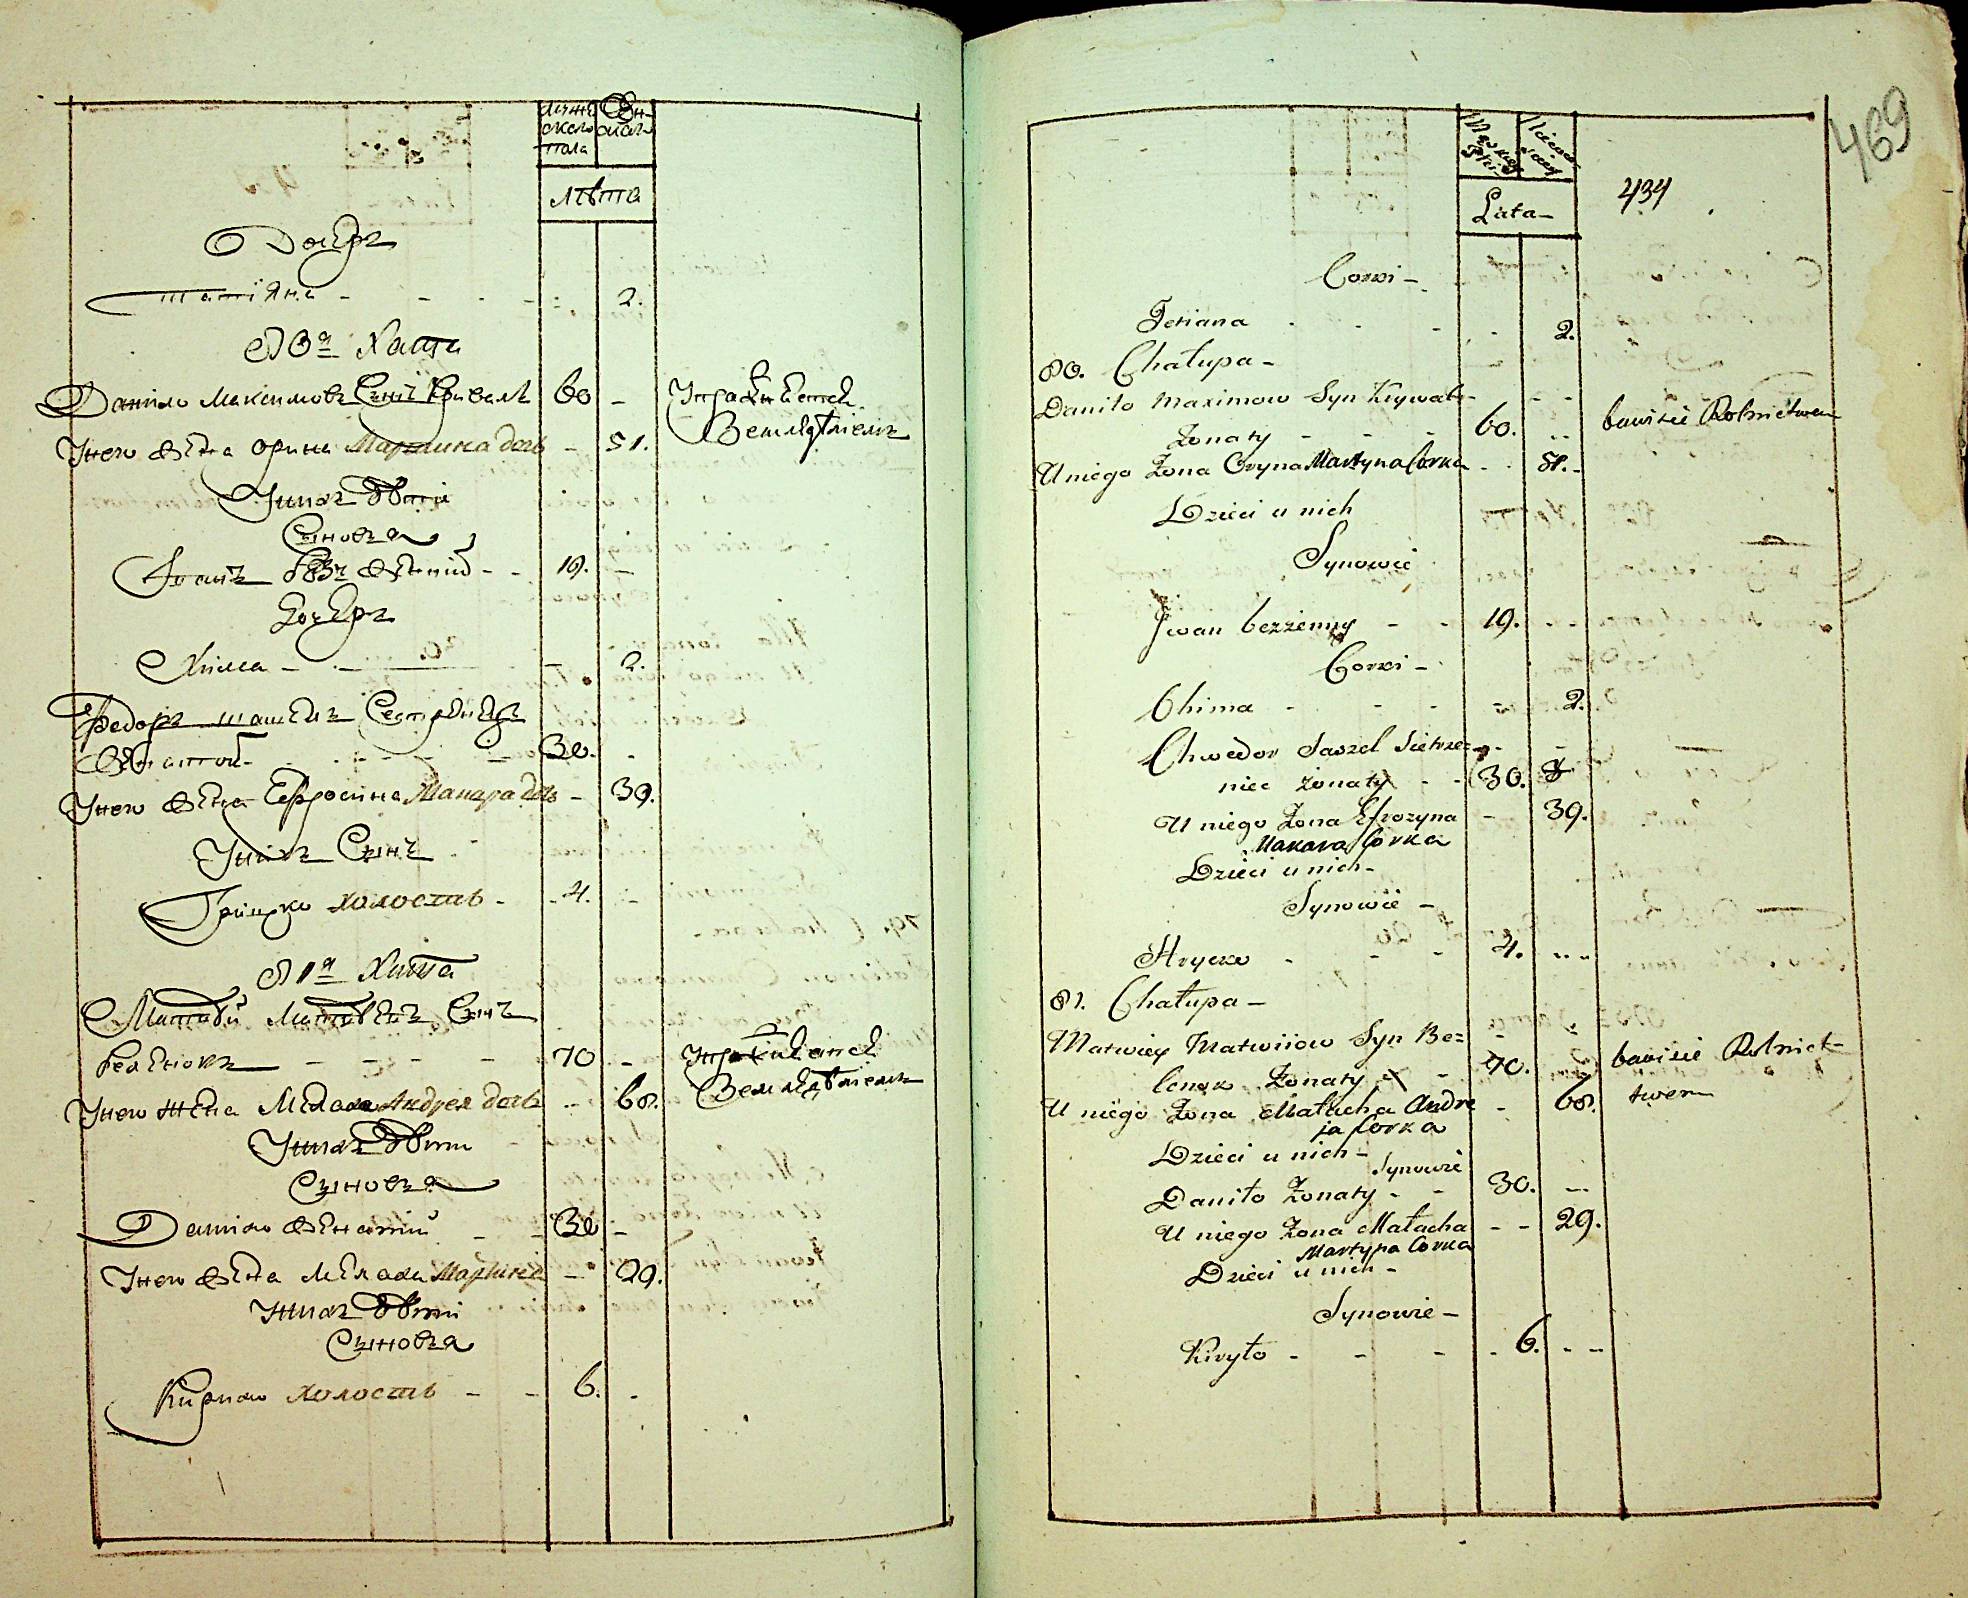 мужеска пола
Женскаго
Лѣта
Дочерь
Татіяна - - - - 2.
80я Хата
Данило Максимовъ Сынъ Кривалъ 60 - Упражняется
У него Жена Орина Мартина дочь - 51. Земледѣлiемъ
У нихъ Дѣти
Сыновья
Иванъ без женный - - 19. -
Дочерь
Хима - - - 2.
Федоръ Сестренецъ
Женатый - - - - 30. -
У него Жена Ефросина Макара дочь - 39.
У нихъ Сынъ
Грицко холостъ - - 4. -
81я Хата
Матвѣй Матвѣевъ Сынъ
- - - - 70 - Упражняется
У него жена Малаха Андрея дочь - 60. Земледѣлiемъ
У нихъ Дѣти
Сыновья
Данило Женатый - - 30 -
У него Жена Малаха Мартина - 29.
У нихъ Дѣти
Сыновья
Кирило холостъ - - 6. -
469
434
Lata -
Corki -
Tetiana - - - - 2.
80. Chałupa -
Daniło Maximow Syn Krywal- - -
Żonaty - - - 60. - bawisie Rolnictwem
U niego Żona Oryna Martyna Corka - - 51. -
Dzieci u nich
Synowie
Jwan bezżenny - - 19. - -
Corki -
Chima - - - - - 2.
Chwedor Saszel Siestrze= - -
niec żonaty - - 30.
U niego Żona Efrozyna - 39.
Makara Corka
Dzieci u nich -
Synowie -
Hrycko - - - 4. - -
81. Chałupa -
Matwiey Matwiiow Syn Be= -
lenok Żonaty - 70. bawisie Rolnict-
U niego Żona Małacha Andre - 60. twem
ja Corka
Dzieci u nich -
Synowie
Daniło Żonaty - - 30. -
U niego Żona Małacha - - 29.
Martyna Corka
Dzieci u nich -
Synowie -
Kiryło - - - - 6. - -